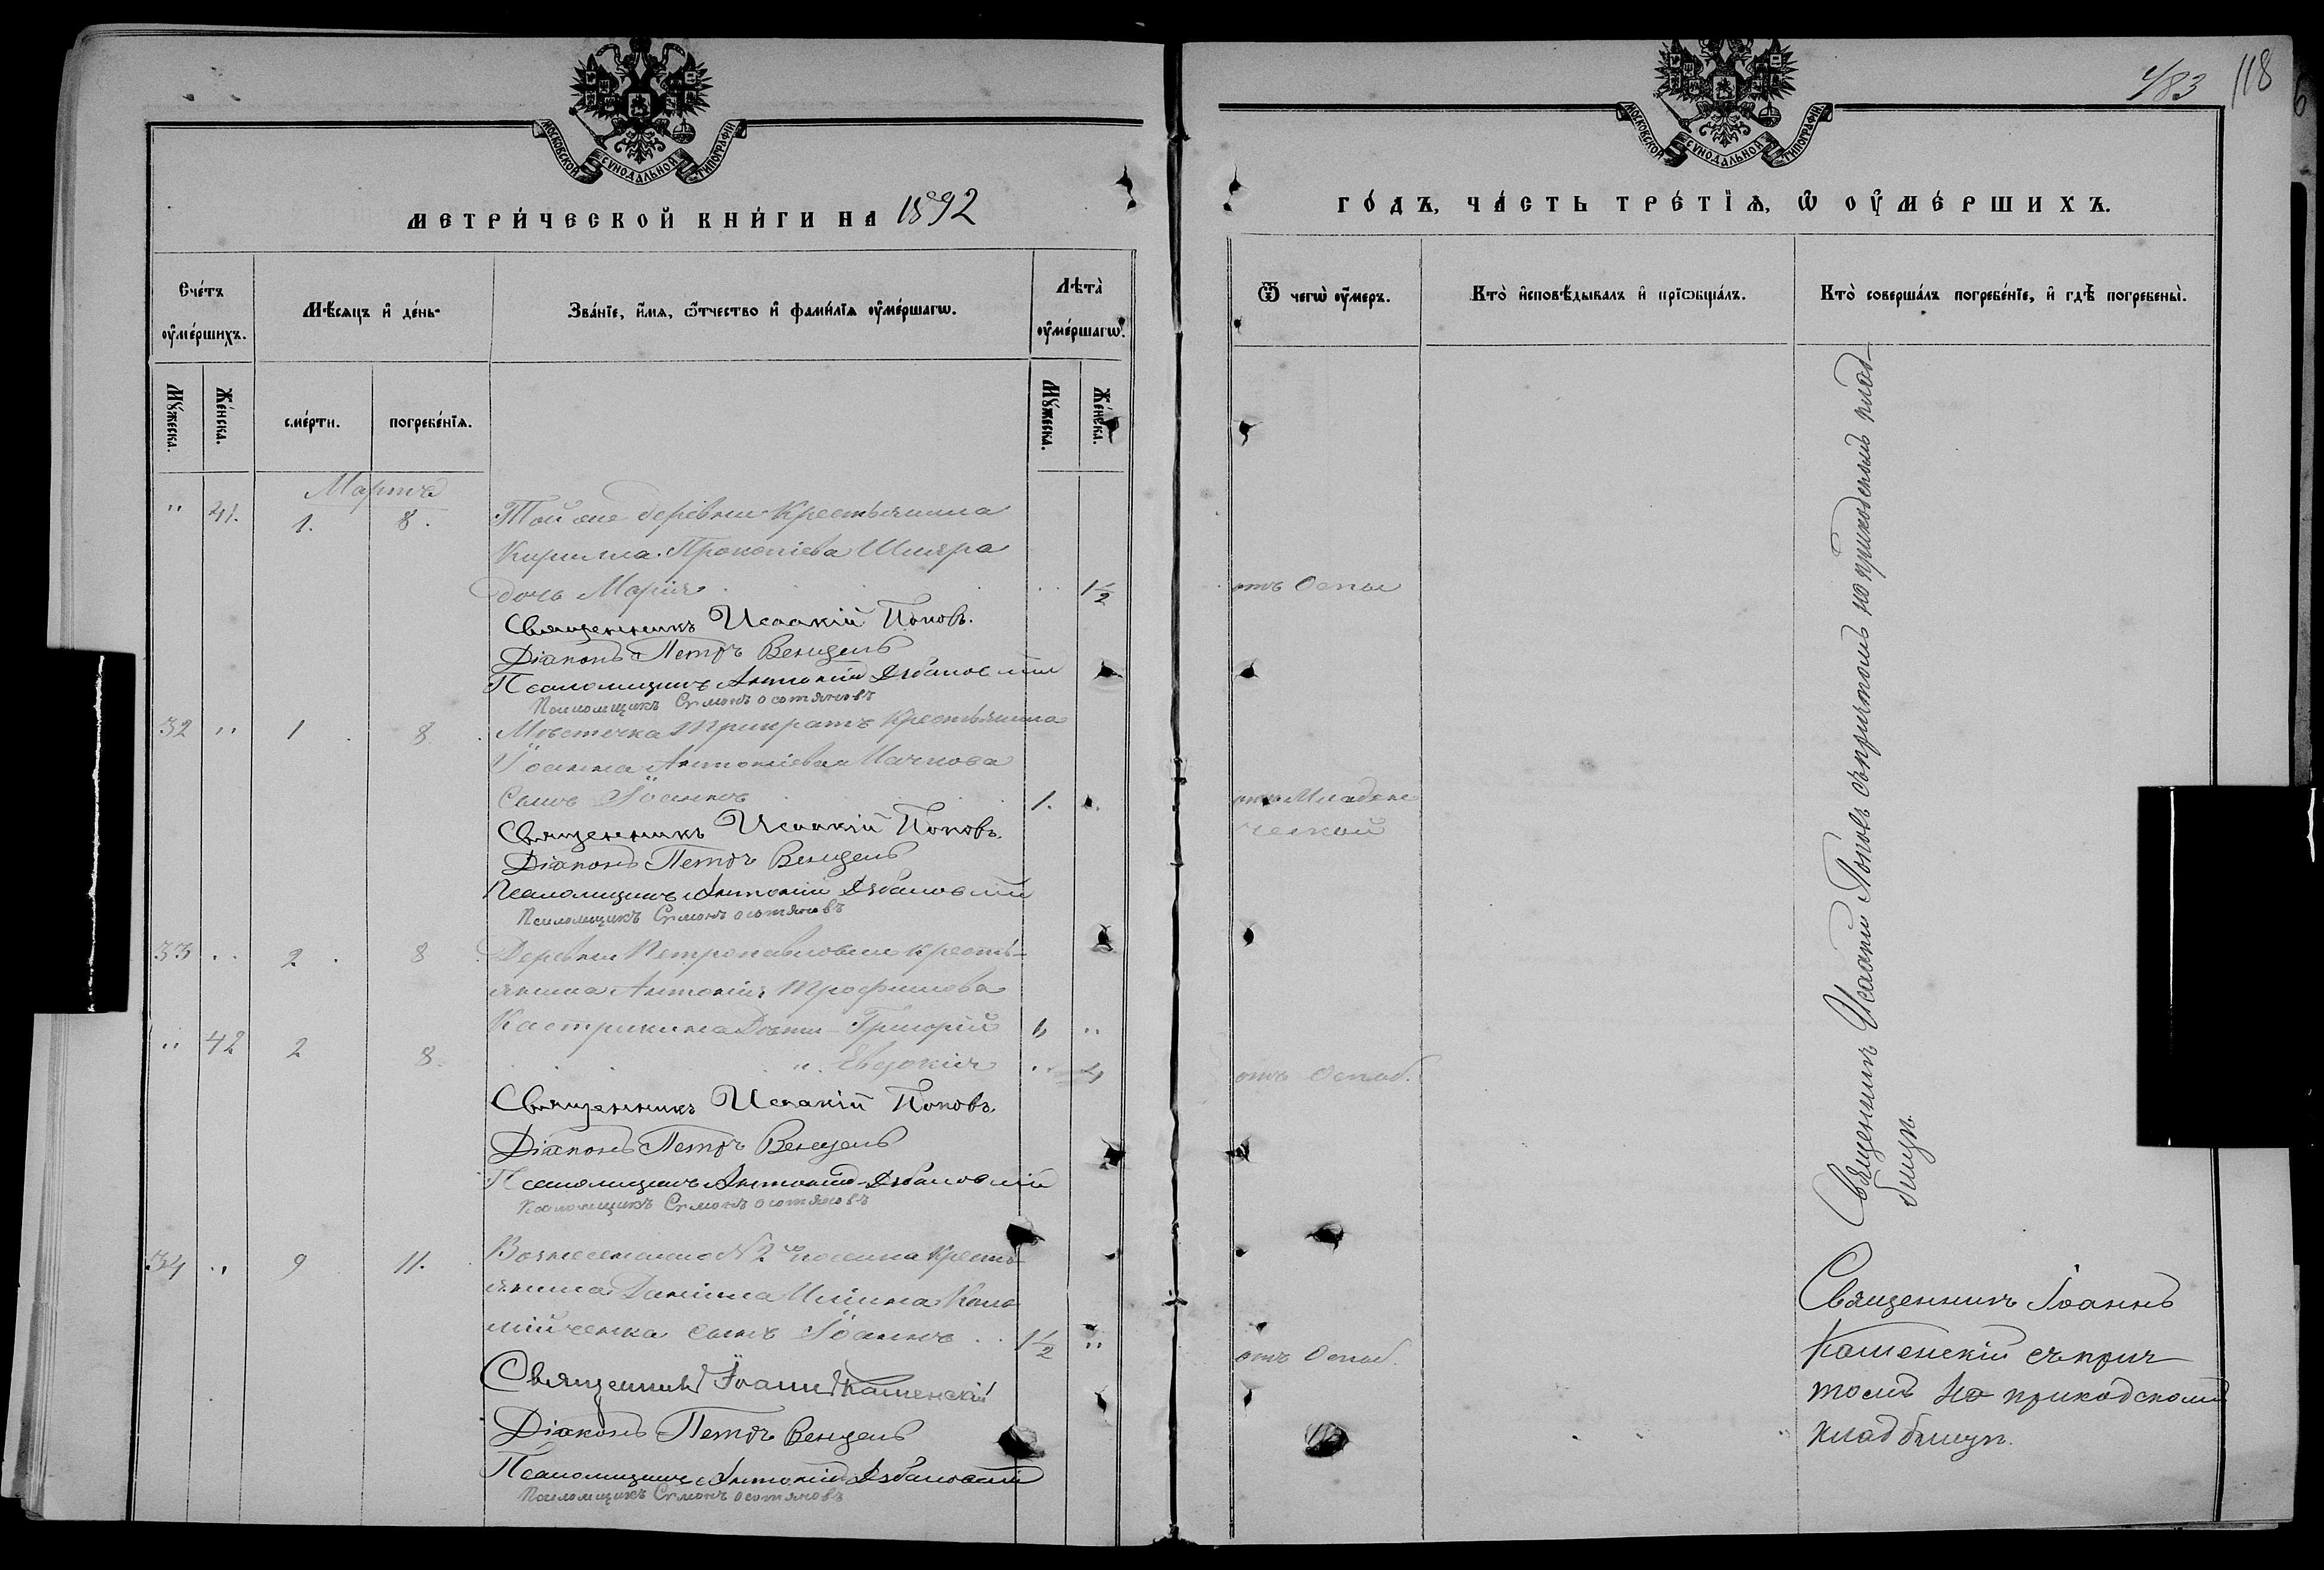 483 118
МОСКОВСКОЙ СУНОДАЛЬНОЙ ТИПОГРАФІИ
МЕТРИ́ЧЕСКОЙ КНИ́ГИ НА 1892
Сче́тъ оу҆ме́ршихъ.
Мѣ́сяцъ и҆ де́нь.
Зва́нїе, и҆́мя, ѻ҆́тчество и҆ фами́лїя оу҆ме́ршагѡ.
Лѣта̀ оу҆ме́ршагѡ.
Мꙋ́жеска.
Же́нска.
сме́рти.
погребе́нїѧ.
Мꙋ́жеска.
Же́нска.
Марта
" 41. 1. 8. Той же деревни Крестьянина
Кирилла Прокопіева Шкяра
дочь Марія 1½
Священникъ Исаакій Поповъ.
Діаконъ Петръ Венцель
Псаломщикъ Антоній Дзбановскій
Псаломщикъ Сѵмонъ Осотяновъ
32 " 1 8 Мѣстечка Трикратъ Крестьянина
Іоанна Антоніева
Сынъ Іоаннъ 1.
Священникъ Исаакій Поповъ.
Діаконъ Петръ Венцель
Псаломщикъ Антоній Дзбановскій
Псаломщикъ Сѵмонъ Осотяновъ
33 " 2 8 Деревни Петропавловки кресть-
янина Антонія Трофимова
Кастрикина Дѣти - Григорій "
" 42 2 8. " Евдокія " 4
Священникъ Исаакій Поповъ.
Діаконъ Петръ Венцель
Псаломщикъ Антоній Дзбановскій
Псаломщикъ Сѵмонъ Осотяновъ
34 " 9 11. Вознесенскаго № 2го поселка Кресть-
янина Даніила Ильина Коло-
мійченка сынъ Іоаннъ 1½ "
Священникъ Іоаннъ Каменскій
Діаконъ Петръ Венцель
Псаломщикъ Антоній Дзбановскій
Псаломщикъ Сѵмонъ Осотяновъ
МОСКОВСКОЙ СУНОДАЛЬНОЙ ТИПОГРАФІИ
ГО́ДЪ, ЧА́СТЬ ТРЕ́ТЇѦ, Ѡ҆ ОУ҆МЕ́РШИХЪ.
Ѿ чегѡ̀ оу҆́меръ.
Кто̀ и҆сповѣ́дывалъ и҆ прїѡбща́лъ.
Кто̀ соверша́лъ погребе́нїе, и҆ гдѣ̀ погребены̀.
отъ Оспы
отъ Младен
ческой
отъ Оспы.
отъ Оспы.
Священникъ Исаакій Поповъ съ причтомъ на приходскомъ клад-
бищѣ.
Священникъ Іоаннъ
Каменскій съ прич-
томъ на приходскомъ
кладбищѣ.